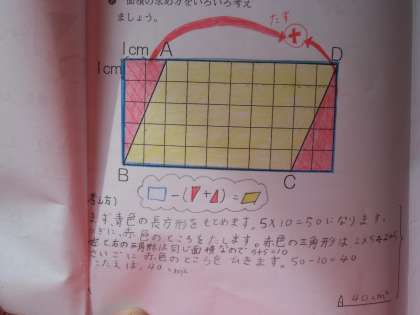 面積の求め方をいろいろ考え
ましょう。
たす
+
1cm A D
1cm
B C
考え方)
まず、青色の長方形をもとめます。5×10=50になります。
つぎに、赤色のところをたします。赤色の三角形は
方の三角形は同じ面積なので5+5=10
さいごに赤色のところをひきます。50-10=40
こたえは、40cm²
A 40cm²